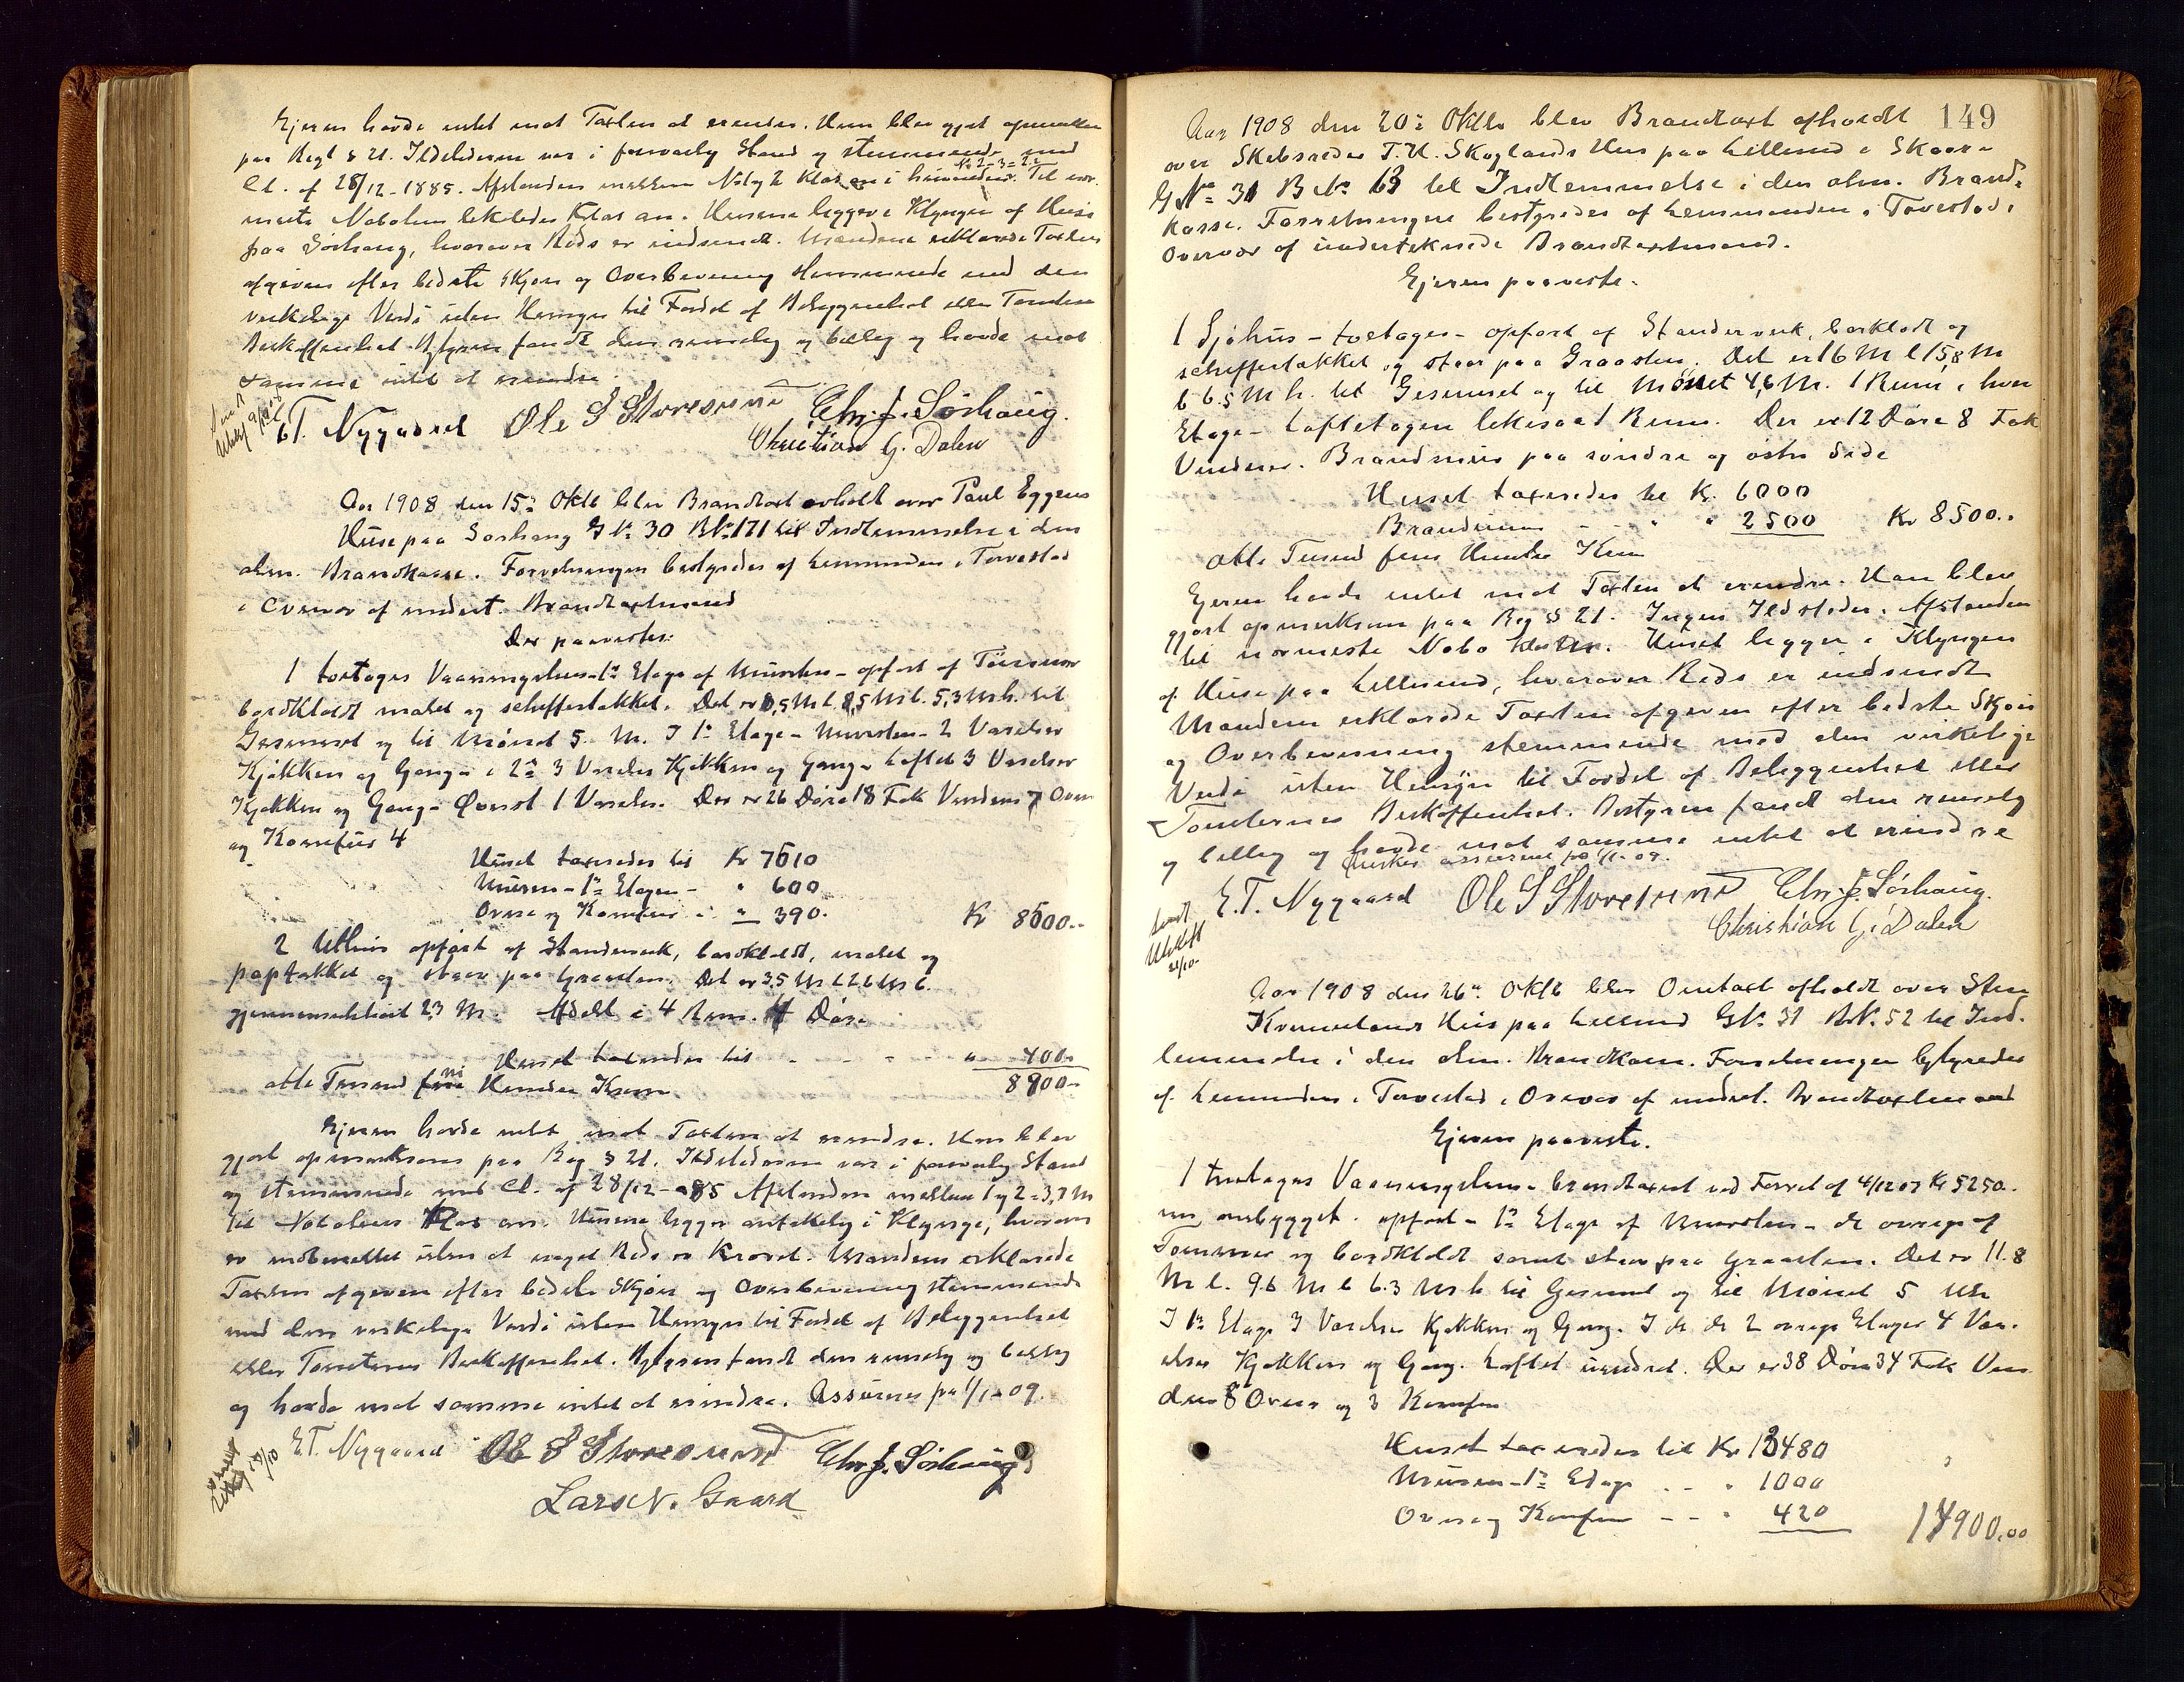 Ejeren havde intet mod Taxten at erindre. Han blev gjort opmerksom
paa Regl § 21. Ildstederne var i forsvarlig Stand og stemmende med
Cl. af 28/12-1885. Afstanden mellem No 1 og 2 Klos
No 2-3=2
meste Nabohus likeledes Klos an. Husene ligger i Klynge af Huse
paa Sørhaug, hvorover Rids er indsendt. Mændene erklærede Taxten
afgiven efter bedste Skjøn og Overbevisning stemmende med den
virkelige Verdi uden Hensyn til Fordel af Beliggenhet eller Tomtens
Beskaffenhet. Bestyren fandt den rimelig og billig og havde mod
samme intet at erindre.
E.T. Nygaard Ole S Storesund Chr. J. Sørhaug.
Christian G. Dalen
Aar 1908 den 15de Oktb blev Brandtaxt avholdt over Paul Eggens
Huse paa Sørhaug G No 30 B No 171 til Indlemmelse i den
alm. Brandkasse. Forretningen bestyredes af Lensmanden i Torvestad
i Overvær af undert. Brandtaxtmænd
Der paavistes:
1 toetages Vaaningshus 1ste Etage af Mursten - opført af Tømmer
bordklædt malet og skiffertækket. Det er 8,5 M b. 5,3 M h. til
Gesimset og til Mønet 5 M. I 1ste Etage - Mursten - 2 Værelser
Kjøkken og Gang - i 2den 3 Værelser Kjøkken og Gang - Loftet 3 Værelser
Kjøkken og Gang - Øverst 1 Værelse. Der er 26 Døre 18 Fak Vinduer 7 Ovne
og Komfur 4
Huset taxeredes til Kr 7610
Muren - 1ste Etagen - " 600
Ovne og Komfur - " 390.
Kr 8600..
2 Uthus opført af Standerverk, bordklædt, malet og
paptækket og staar paa Graasten. Det er 3,5 M l 2,6 M b.
gjennemsnitlivt 2,3 M. Afdelt i 4 Rum. 4 Døre
Huset taxeredes til - - - - " 400..
otte Tusend ni Hundre Kroner 8900..
Ejeren havde intet mod Taxten at erindre. Han blev
gjort opmerksom paa Reg § 21. Ildstederne var i forsvarlig Stand
og stemmende med Cl. af 28/12-85 Afstanden mellem 1 og 2 = 3,7 M
til Nabohus Klos an. Husene ligger antakelig i Klynge, hvorom
er indberettet uten at noget Rids er krævet. Mændene erklærede
Taxten afgiven efter bedste Skjøn og Overbevisning stemmende
med den virkelige Verdi uten Hensyn til Fordel af Beliggenhet
eller Tomternes Beskaffenhet. Bestyren fandt den rimelig og billig
og havde mod samme intet at erindre. Assureres fra 1/1-09.
E.T. Nygaard Ole S Storesund Chr. J. Sørhaug
Lars N. Gaard
149
Aar 1908 den 20de Oktb blev Brandtaxt afholdt
over Skibsreder T.H. Skoglands Hus paa Lillesund i Skaare
G No 31 B No 63 til Indlemmelse i den alm. Brand-
kasse. Forretningen bestyredes af Lensmanden i Torvestad i
Overvær af undertegnede Brandtaxtmænd.
Ejeren paaviste.
1 Sjøhus - toetages - opført af Standerverk, bordklædt og
skiffertækket og staar paa Graasten. Det er 16 M l 15,8 M
b 6.5 M h. til Gesimset og til Mønet 4,6 M. 1 Rum i hver
Etage - Loftetagen likesaa 1 Rum. Der er 12 Døre 8 Fak
Vinduer. Brandmur paa søndre og østre Side
Huset taxeredes til Kr. 6000
Brandmuren - - " " 2500 Kr 8500..
otte Tusend fem Hundre Kroner
Ejeren havde intet mod Taxten at erindre. Han blev
gjort opmerksom paa Reg § 21. Ingen Ildsteder. Afstanden
til nærmeste Nabo Klos an. Huset ligger i Klyngen
af Huse paa Lillesund, hvorover Rids er indsendt
Mændene erklærede Taxten afgiven efter bedste Skjøn
og Overbevisning stemmende med den virkelige
Verdi uten Hensyn til Fordel af Beliggenhet eller
Tomternes Beskaffenhet. Bestyren fandt den rimelig
og billig og havde mod samme intet at erindre
Ønskes assureret fra 1/1-09.
E.T. Nygaard Ole S Storesund Chr. J. Sørhaug.
Christian G. Dalen
Aar 1908 den 26de Oktb blev Omtaxt afholdt over Sten
Kvamelands Hus paa Lillesund G No. 31 B No. 52 til Ind-
lemmelse i den alm. Brandkasse. Forretningen bestyredes
af Lensmanden i Torvestad i Overvær af undert. Brandtaxtmænd
Ejeren paaviste.
1 treetages Vaaningshus - brandtaxert ved Forret af 4/12 07 Kr 5250.
nu ombygget. opført - 1ste Etage af Mursten - de øvrige af
Tømmer og bordklædt samt staar paa Graasten. Det er 11.8
M l. 9.6 M b 6.3 M h til Gesimset og til Mønet 5 M
I 1ste Etage 3 Værelser Kjøkken og Gang. I de 2 øvrige Etager 4 Vær-
elser Kjøkken og Gang. Loftet uindret. Der er 38 Døre 34 Fak Vin
duer 8 Ovne og 3 Komfur
Huset taxeredes til Kr 13480
Muren - 1ste Etage - - " 1000
Ovne og Komfur - - " 420
14900.00